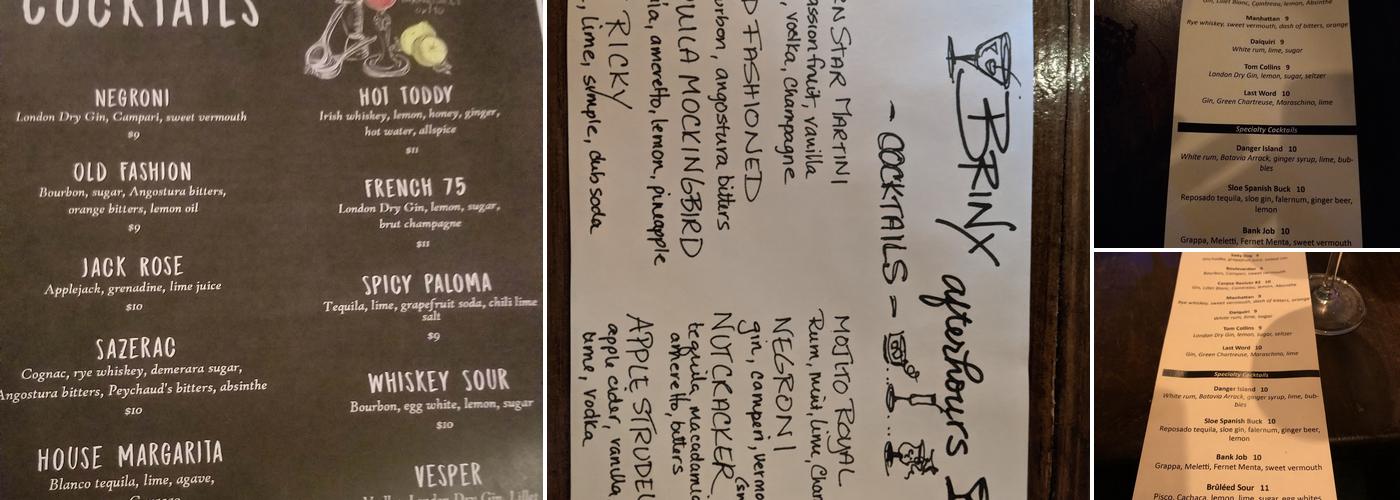 COCKTAILS
NEGRONI
London Dry Gin, Campari, sweet vermouth
$9
OLD FASHION
Bourbon, sugar, Angostura bitters,
orange bitters, lemon oil
$9
JACK ROSE
Applejack, grenadine, lime juice
$10
SAZERAC
Cognac, rye whiskey, demerara sugar,
Angostura bitters, Peychaud's bitters, absinthe
$10
HOUSE MARGARITA
Blanco tequila, lime, agave,
HOT TODDY
Irish whiskey, lemon, honey, ginger,
hot water, allspice
$11
FRENCH 75
London Dry Gin, lemon, sugar,
brut champagne
$11
SPICY PALOMA
Tequila, lime, grapefruit soda, chili lime
salt
$9
WHISKEY SOUR
Bourbon, egg white, lemon, sugar
$10
VESPER
BRINX afterhours
- COCKTAILS -
STAR MARTINI
passionfruit, vanilla
, vodka, champagne
FASHIONED
angostura bitters
MOCKINGBIRD
, amaretto, lemon, pineapple
RICKY
, lime, simple, club soda
MOJITO ROYAL
Rum, mint, lime,
NEGRONI
gin, campari,
NUTCRACKER
tequila,
amaretto, bitters
APPLE STRUDEL
apple cider, vanilla
lime, vodka
Gin, Lillet Blanc, Cointreau, lemon, Absinthe
Manhattan 9
Rye whiskey, sweet vermouth, dash of bitters, orange
Daiquiri 9
White rum, lime, sugar
Tom Collins 9
London Dry Gin, lemon, sugar, seltzer
Last Word 10
Gin, Green Chartreuse, Maraschino, lime
Specialty Cocktails
Danger Island 10
White rum, Batavia Arrack, ginger syrup, lime, bub-
bles
Sloe Spanish Buck 10
Reposado tequila, sloe gin, falernum, ginger beer,
lemon
Bank Job 10
Grappa, Meletti, Fernet Menta, sweet vermouth
Boulevardier 9
Bourbon, Campari, sweet vermouth
Corpse Reviver #2 10
Gin, Lillet Blanc, Cointreau, lemon, Absinthe
Manhattan 9
Rye whiskey, sweet vermouth, dash of bitters, orange
Daiquiri 9
White rum, lime, sugar
Tom Collins 9
London Dry Gin, lemon, sugar, seltzer
Last Word 10
Gin, Green Chartreuse, Maraschino, lime
Specialty Cocktails
Danger Island 10
White rum, Batavia Arrack, ginger syrup, lime, bub-
bles
Sloe Spanish Buck 10
Reposado tequila, sloe gin, falernum, ginger beer,
lemon
Bank Job 10
Grappa, Meletti, Fernet Menta, sweet vermouth
Brûléed Sour 11
Pisco, Cachaca, lemon, lime, sugar, egg whites